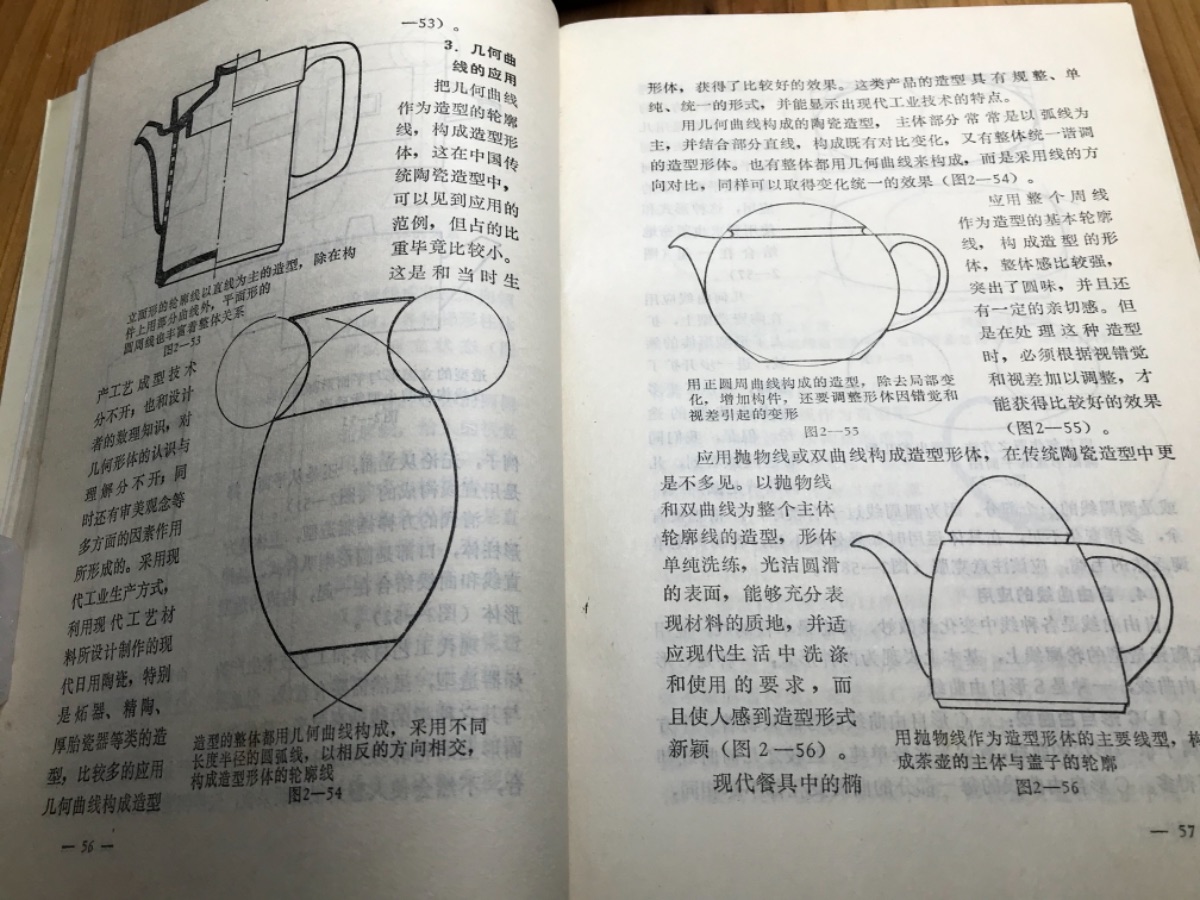 —53）。
3．几何曲
线的应用
把几何曲线
作为造型的轮廓
线，构成造型形
体，这在中国传
统陶瓷造型中，
可以见到应用的
范例，但占的比
重毕竟比较小。
这是和当时生
立面形的轮廓线以直线为主的造型，除在构
件上用部分曲线外，平面形的
圆周线也丰富着整体关系
图2—53
产工艺成型技术
分不开；也和设计
者的数理知识，对
几何形体的认识与
理解分不开；同
时还有审美观念等
多方面的因素作用
所形成的。采用现
代工业生产方式，
利用现代工艺材
料所设计制作的现
代日用陶瓷，特别
是炻器、精陶、
厚胎瓷器等类的造
型，比较多的应用
几何曲线构成造型
造型的整体都用几何曲线构成，采用不同
长度半径的圆弧线，以相反的方向相交，
构成造型形体的轮廓线
图2—54
— 56 —
形体，获得了比较好的效果。这类产品的造型具有规整、单
纯、统一的形式，并能显示出现代工业技术的特点。
用几何曲线构成的陶瓷造型，主体部分常常是以弧线为
主，并结合部分直线，构成既有对比变化，又有整体统一谐调
的造型形体。也有整体都用几何曲线来构成，而是采用线的方
向对比，同样可以取得变化统一的效果（图2—54）。
应用整个周线
作为造型的基本轮廓
线，构成造型的形
体，整体感比较强，
突出了圆味，并且还
有一定的亲切感。但
是在处理这种造型
时，必须根据视错觉
和视差加以调整，才
能获得比较好的效果
（图2—55）。
用正圆周曲线构成的造型，除去局部变
化，增加构件，还要调整形体因错觉和
视差引起的变形
图2—55
应用抛物线或双曲线构成造型形体，在传统陶瓷造型中更
是不多见。以抛物线
和双曲线为整个主体
轮廓线的造型，形体
单纯洗练，光洁圆滑
的表面，能够充分表
现材料的质地，并适
应现代生活中洗涤
和使用的要求，而
且使人感到造型形式
新颖（图2—56）。
现代餐具中的椭
用抛物线作为造型形体的主要线型，构
成茶壶的主体与盖子的轮廓
图2—56
— 57